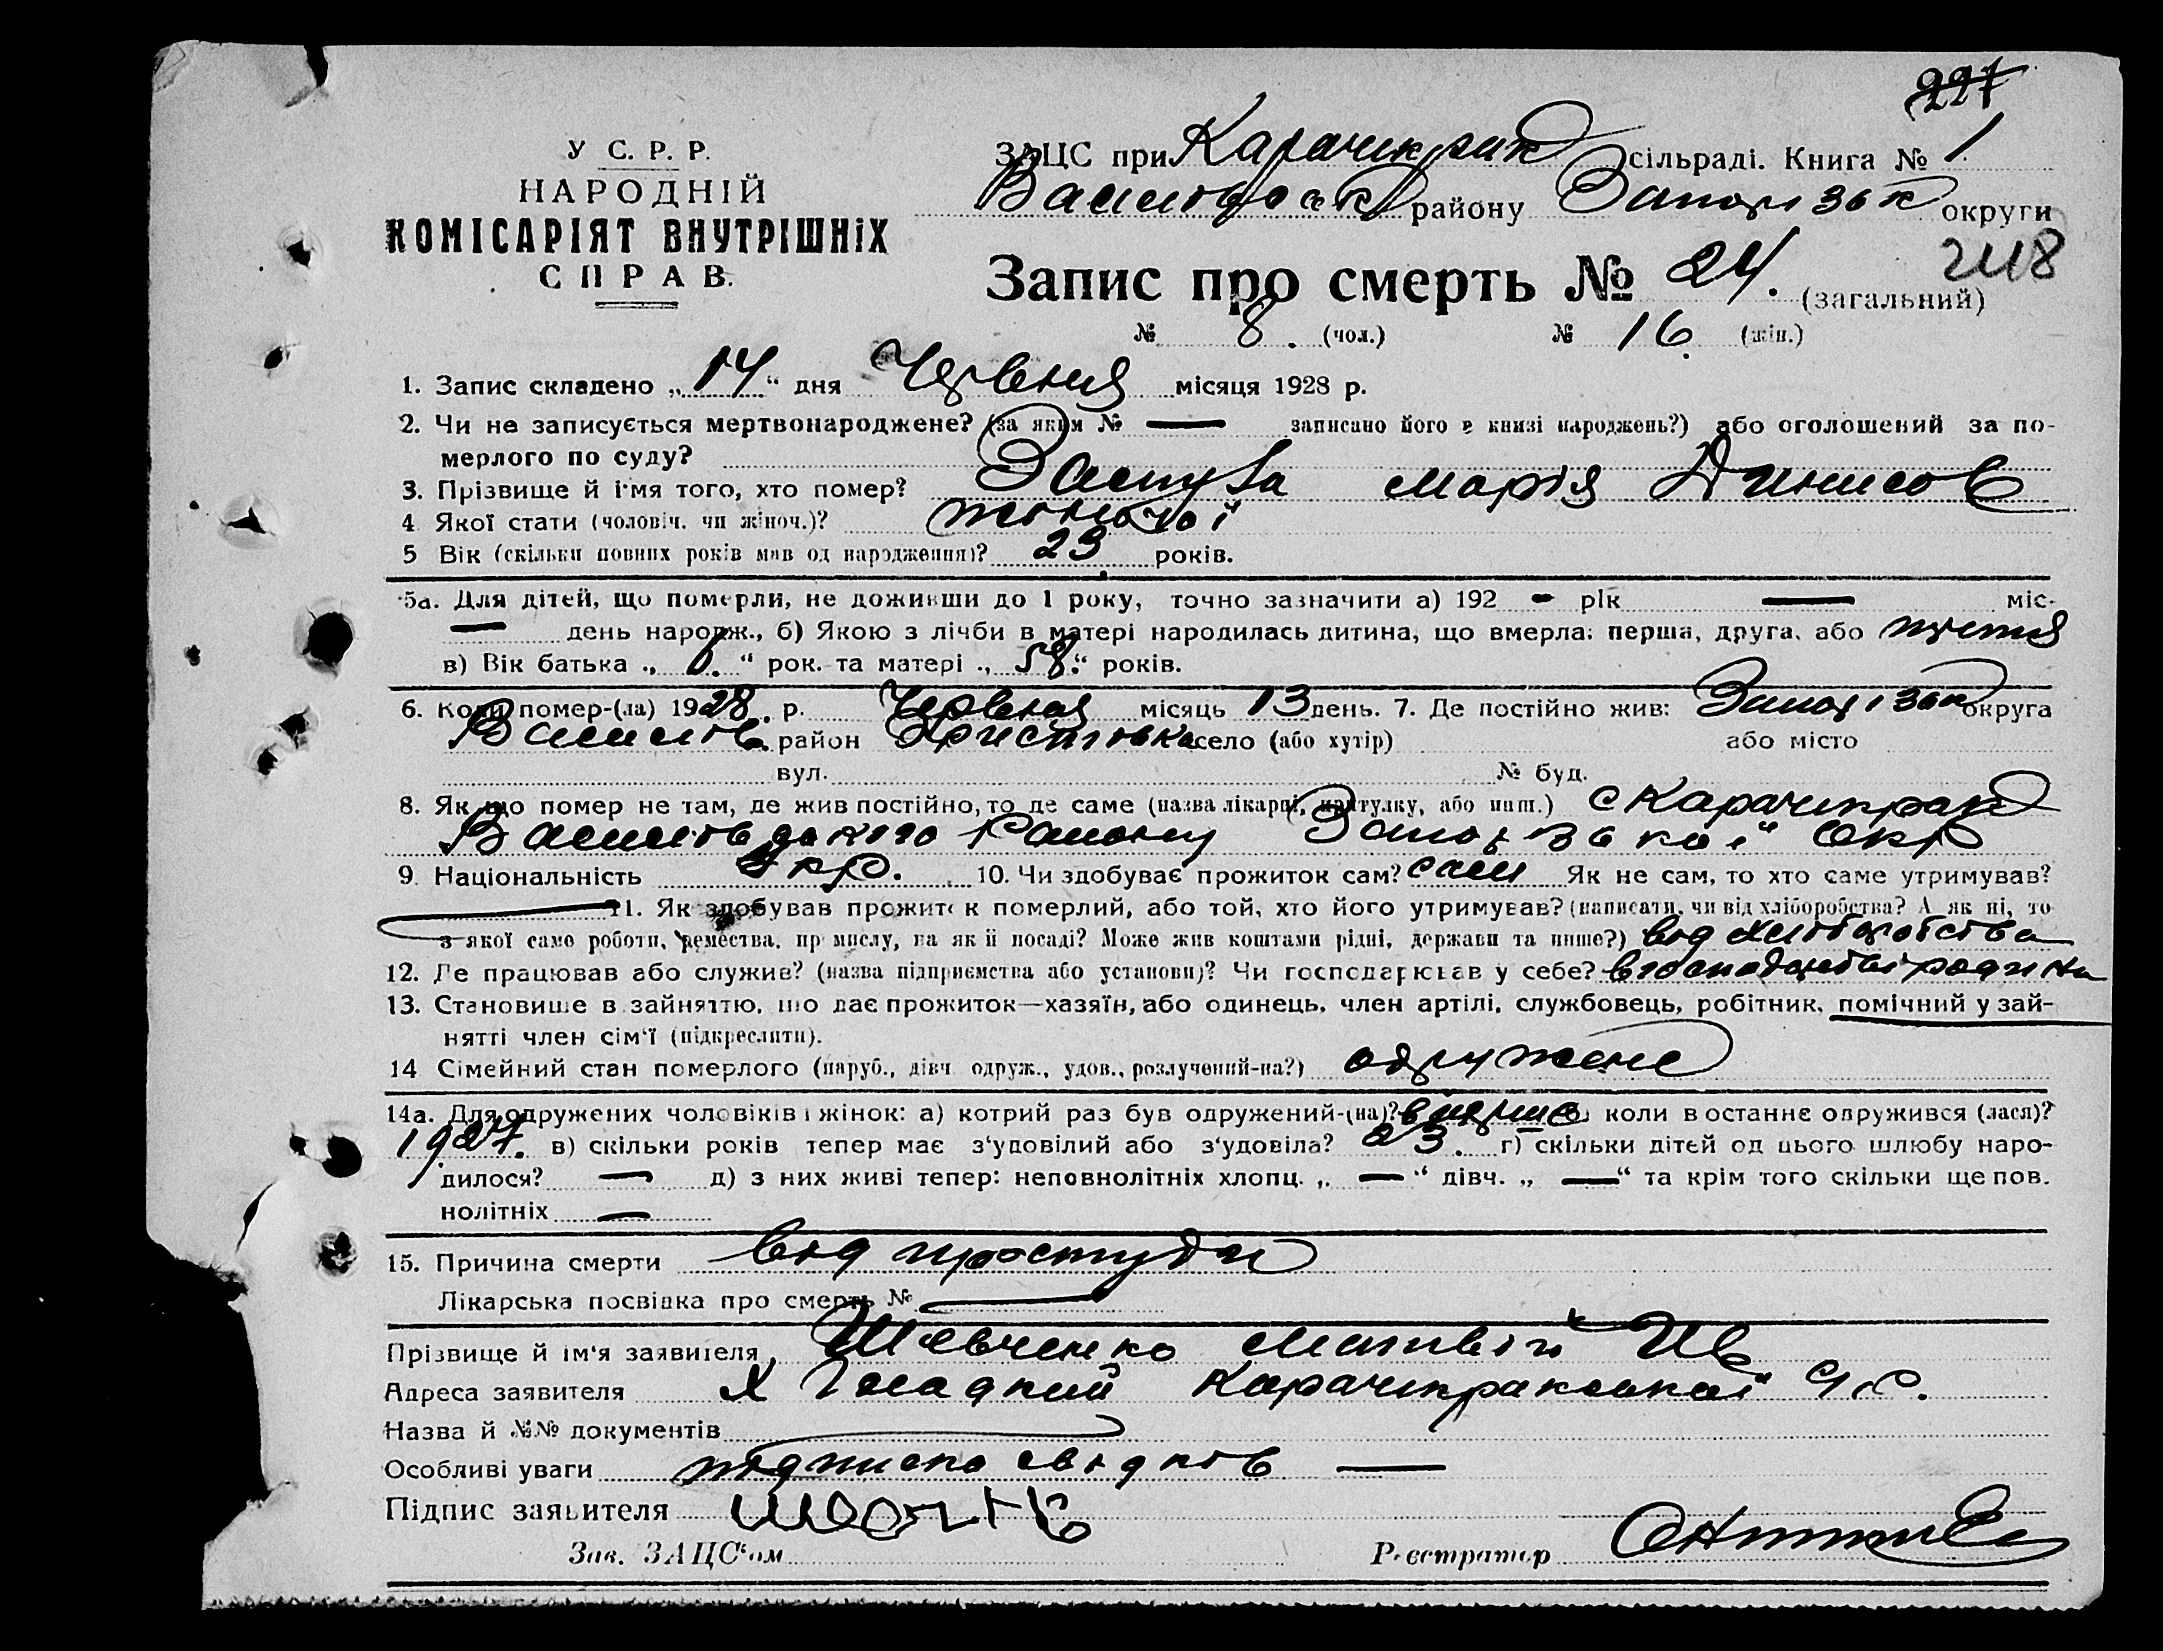 227
У С. Р. Р.
НАРОДНІЙ
КОМІСАРІЯТ ВНУТРІШНІХ
СПРАВ.
ЗАЦС при Карачикрак сільраді. Книга № 1
Василівськ району Запорізьк округи
248
Запис про смерть № 24. (загальний)
№ 8. (чол.) № 16. (жін.)
1. Запис складено „14“ дня Червня місяця 1928 р.
2. Чи не записується мертвонароджене? (за яким № — записано його в книзі народжень?) або оголошений за по-
мерлого по суду?
3. Прізвище й ім'я того, хто помер? Марія Динисов
4 Якої стати (чоловіч. чи жіноч.)? жіночої
5 Вік (скільки повних років мав од народження)? 23 років.
5а. Для дітей, що померли, не доживши до 1 року, точно зазначити а) 192 — рік — міс.
— день народж., б) Якою з лічби в матері народилась дитина, що вмерла: перша, друга, або третя
в) Вік батька „ “ рок. та матері „58.“ років.
6. Коли помер-(ла) 1928. р. Червня місяць 13 день. 7. Де постійно жив: Запорізьк округа
Василів. район село (або хутір) або місто
вул. № буд.
8. Якщо помер не там, де жив постійно, то де саме (назва лікарні, притулку, або инш.) с Карачикрак
Василівського Району Запорізької Окр
9. Національність Укр. 10. Чи здобуває прожиток сам? сам Як не сам, то хто саме утримував?
— 11. Як здобував прожиток померлий, або той, хто його утримував? (написати, чи від хліборобства? А як ні, то
з якої саме роботи, ремества, промислу, на якій посаді? Може жив коштами рідні, держави та инше?) від хліборобства
12. Де працював або служив? (назва підприємства або установи)? Чи господарював у себе? в господарстві родини
13. Становище в зайняттю, що дає прожиток—хазяїн, або одинець, член артілі, службовець, робітник, помічний у зай-
нятті член сім'ї (підкреслити).
14 Сімейний стан померлого (паруб., дівч. одруж., удов., розлучений-на?) одружене
14а. Для одружених чоловіків і жінок: а) котрий раз був одружений-(на)? вперше б) коли в останнє одружився (лася)?
1927. в) скільки років тепер має з'удовілий або з'удовіла? 23. г) скільки дітей од цього шлюбу наро-
дилося? — д) з них живі тепер: неповнолітніх хлопц. „ — “ дівч. „ — “ та крім того скільки ще пов.
нолітніх —
15. Причина смерти від простуди
Лікарська посвідка про смерть № —
Прізвище й ім'я заявителя Шевченко Матвій Ив
Адреса заявителя Х Гладкий Карачикракської С/С.
Назва й №№ документів
Особливі уваги підписка свідків —
Підпис заявителя
Зав. ЗАЦС'ом Реєстратор